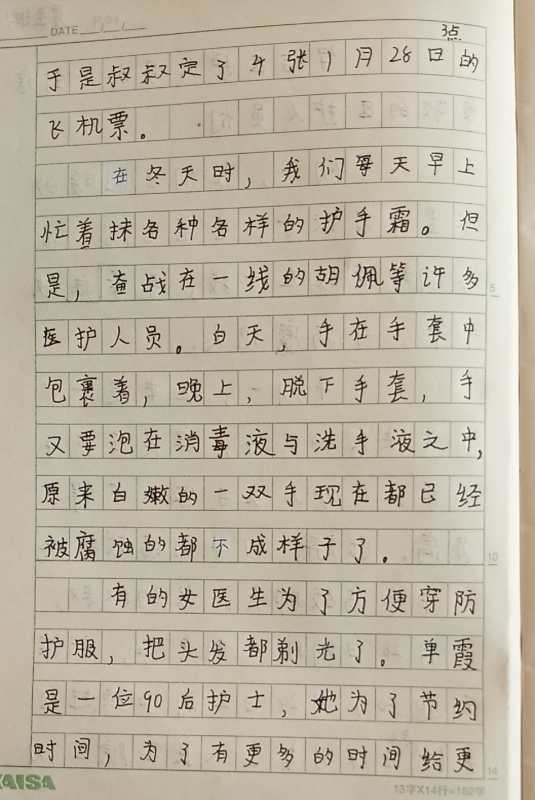 DATE
于是叔叔定了4张1月28日的
飞机票。
在冬天时，我们每天早上
忙着抹各种各样的护手霜。但
是，奋战在一线的胡佩等许多
医护人员。白天，手在手套中
包裹着，晚上，脱下手套，手
又要泡在消毒液与洗手液之中，
原来白嫩的一双手现在都已经
被腐蚀的都不成样子了。
有的女医生为了方便穿防
护服，把头发都剃光了。单霞
是一位90后护士，她为了节约
时间，为了有更多的时间给更
5
10
14
KAISA
13字X14行=182字